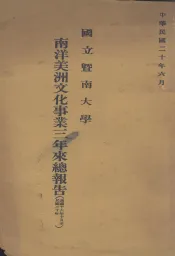 中華民國二十年六月
國立暨南大學
南洋美洲文化事業三年來總報告